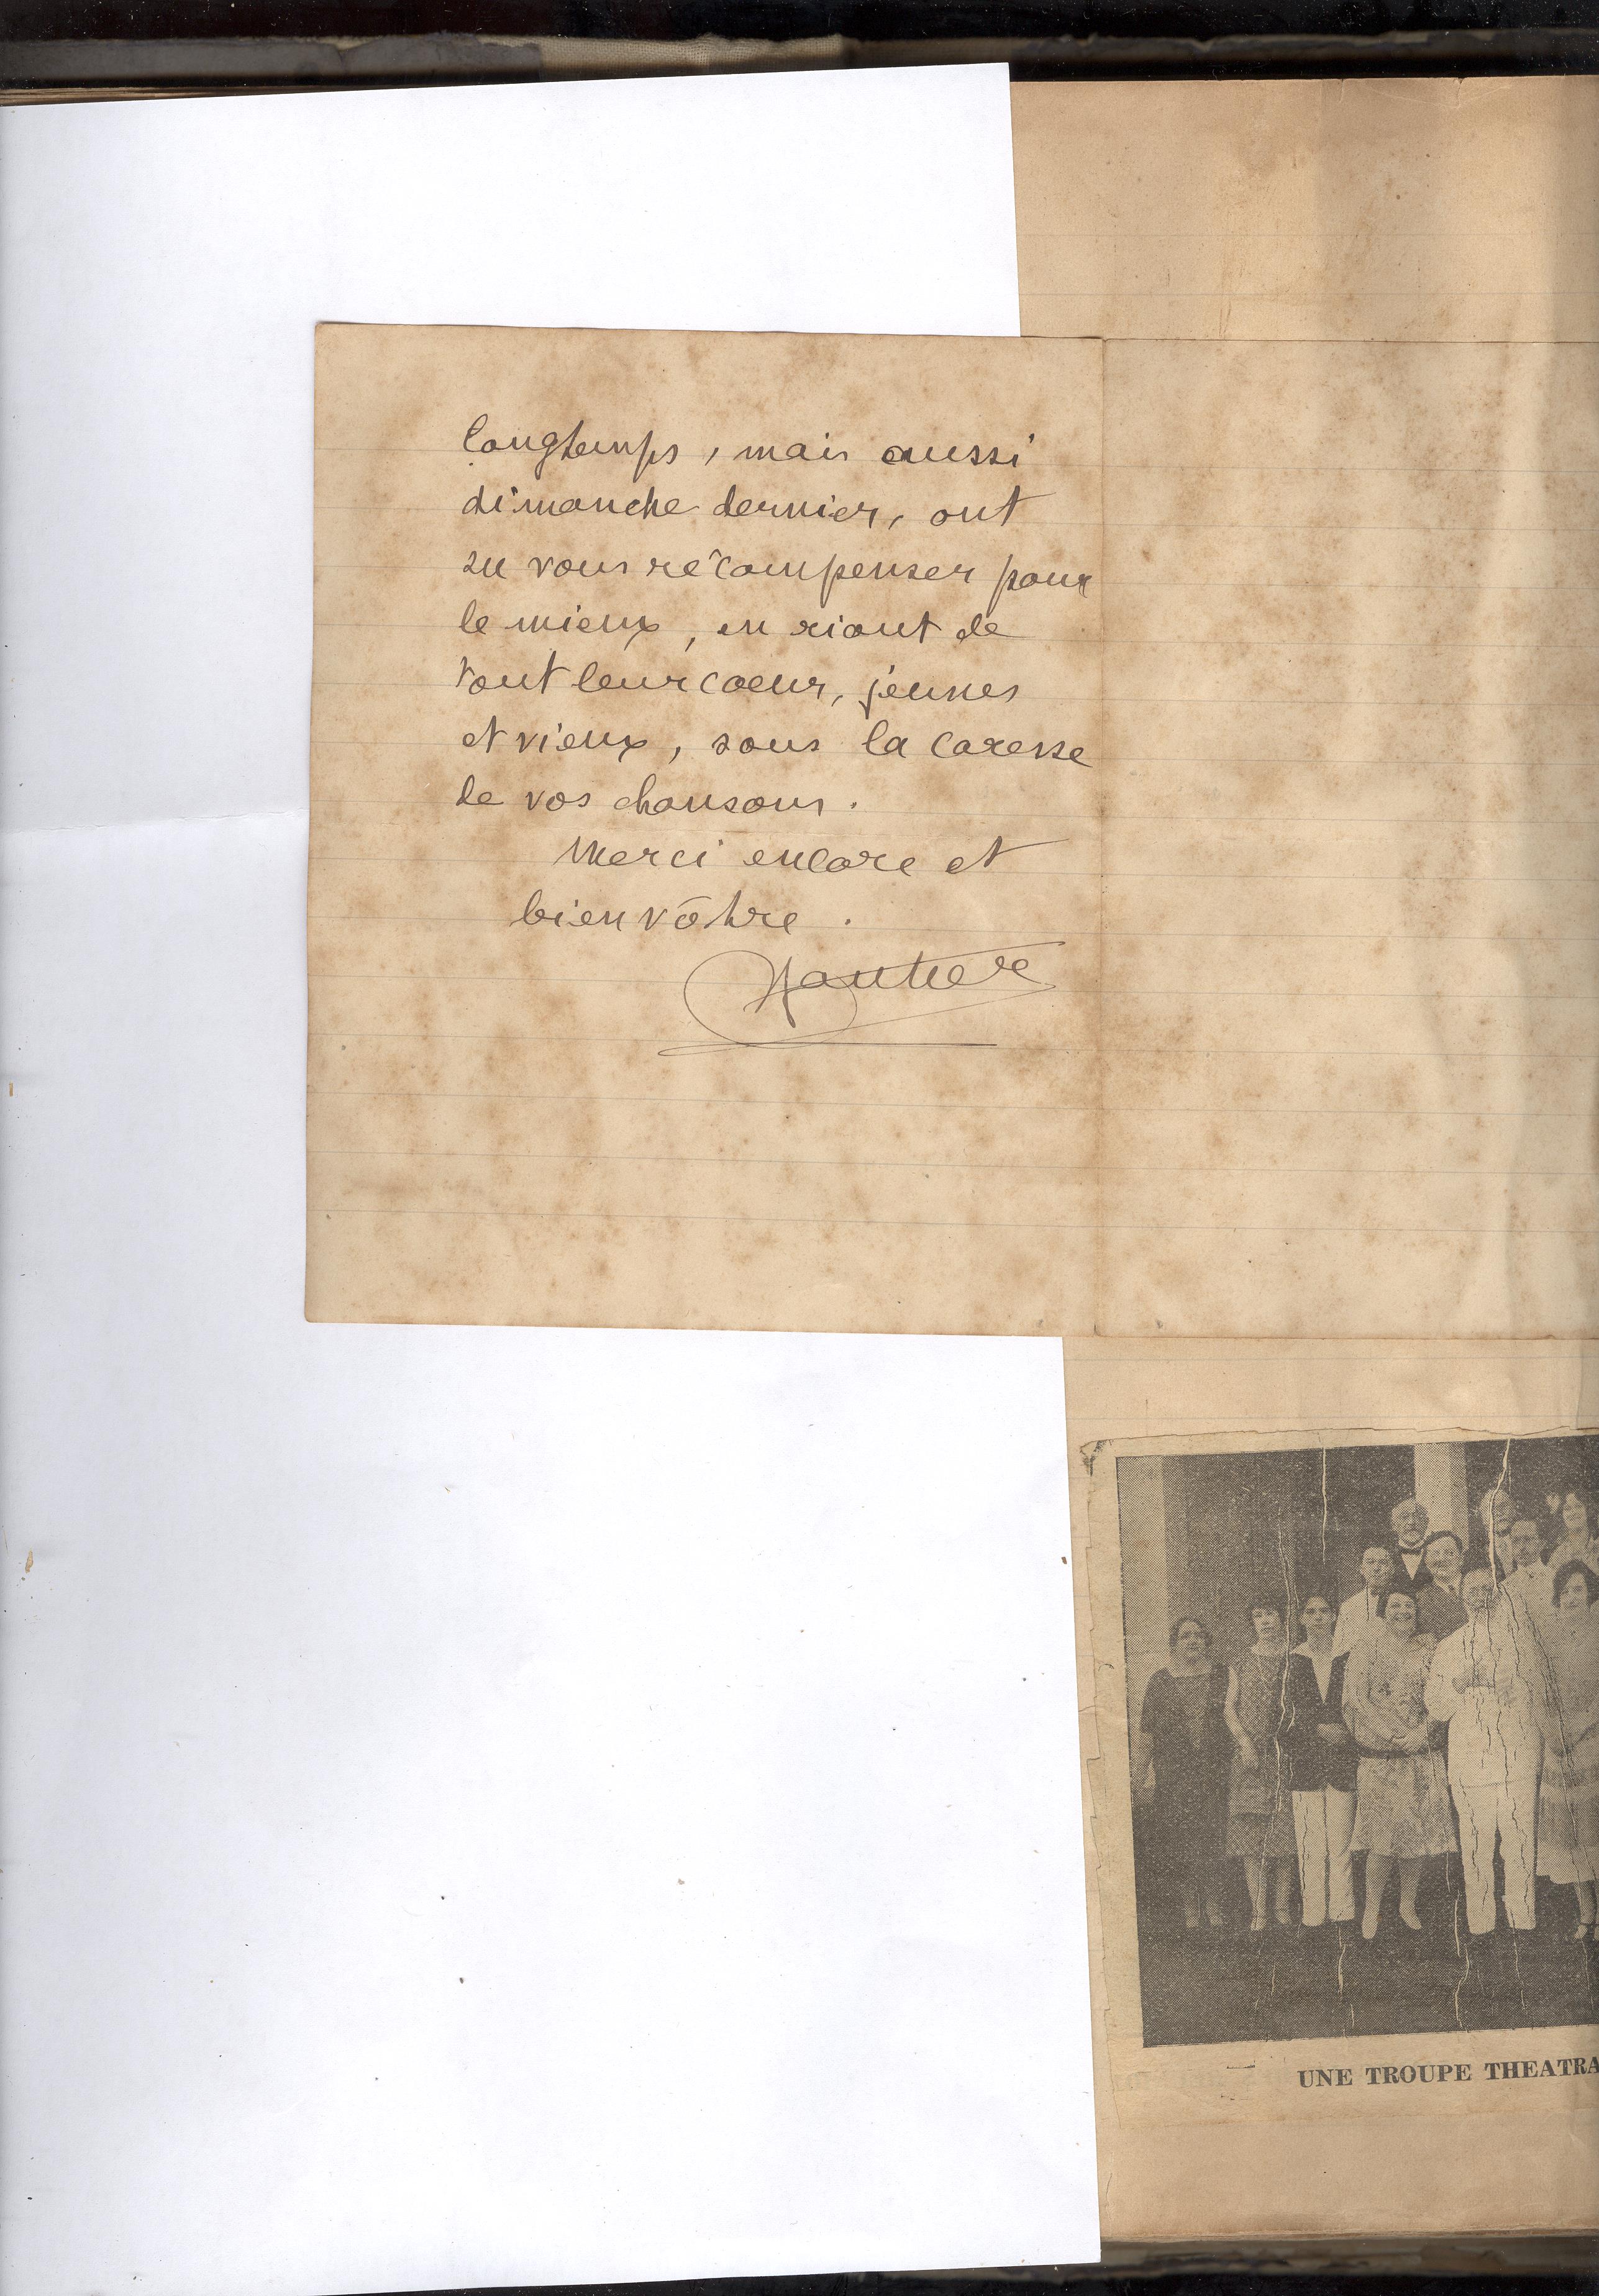 longtemps, mais aussi
dimanche dernier, ont
su vous récompenser pour
le mieux, en riant de
tout leur coeur, jeunes
et vieux, sous la caresse
de vos chansons.
Merci encore et
bien vôtre.
UNE TROUPE THEATRA